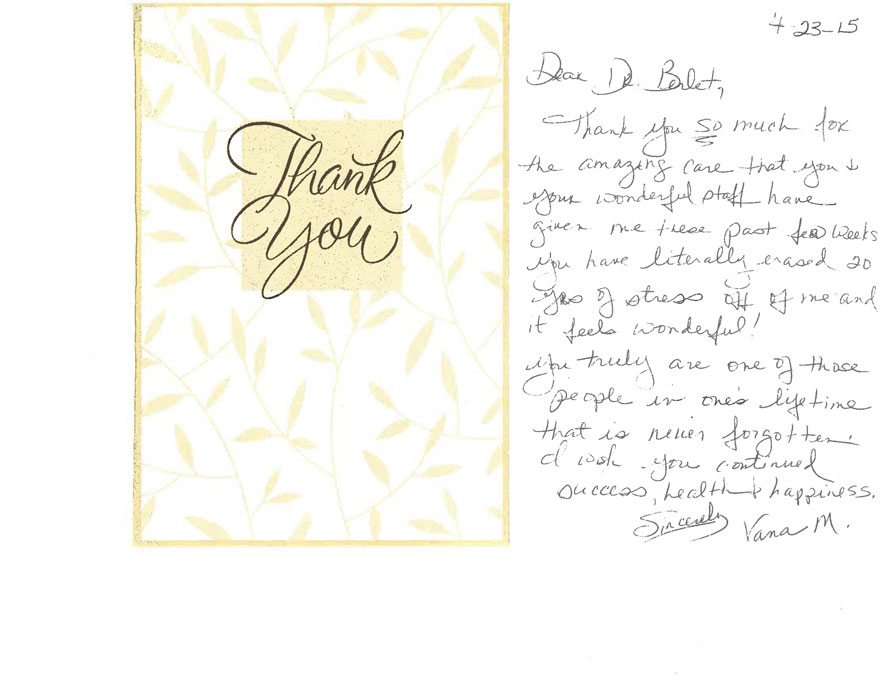 Thank
You
4-23-15
Dear Dr. Berlet,
Thank you so much for
the amazing care that you &
your wonderful staff have
given me these past few weeks
you have literally erased 20
yrs of stress off of me and
it feels wonderful!
you truly are one of those
people in one's lifetime
that is never forgotten.
I wish you continued
success, health & happiness.
Sincerely
Vana M.